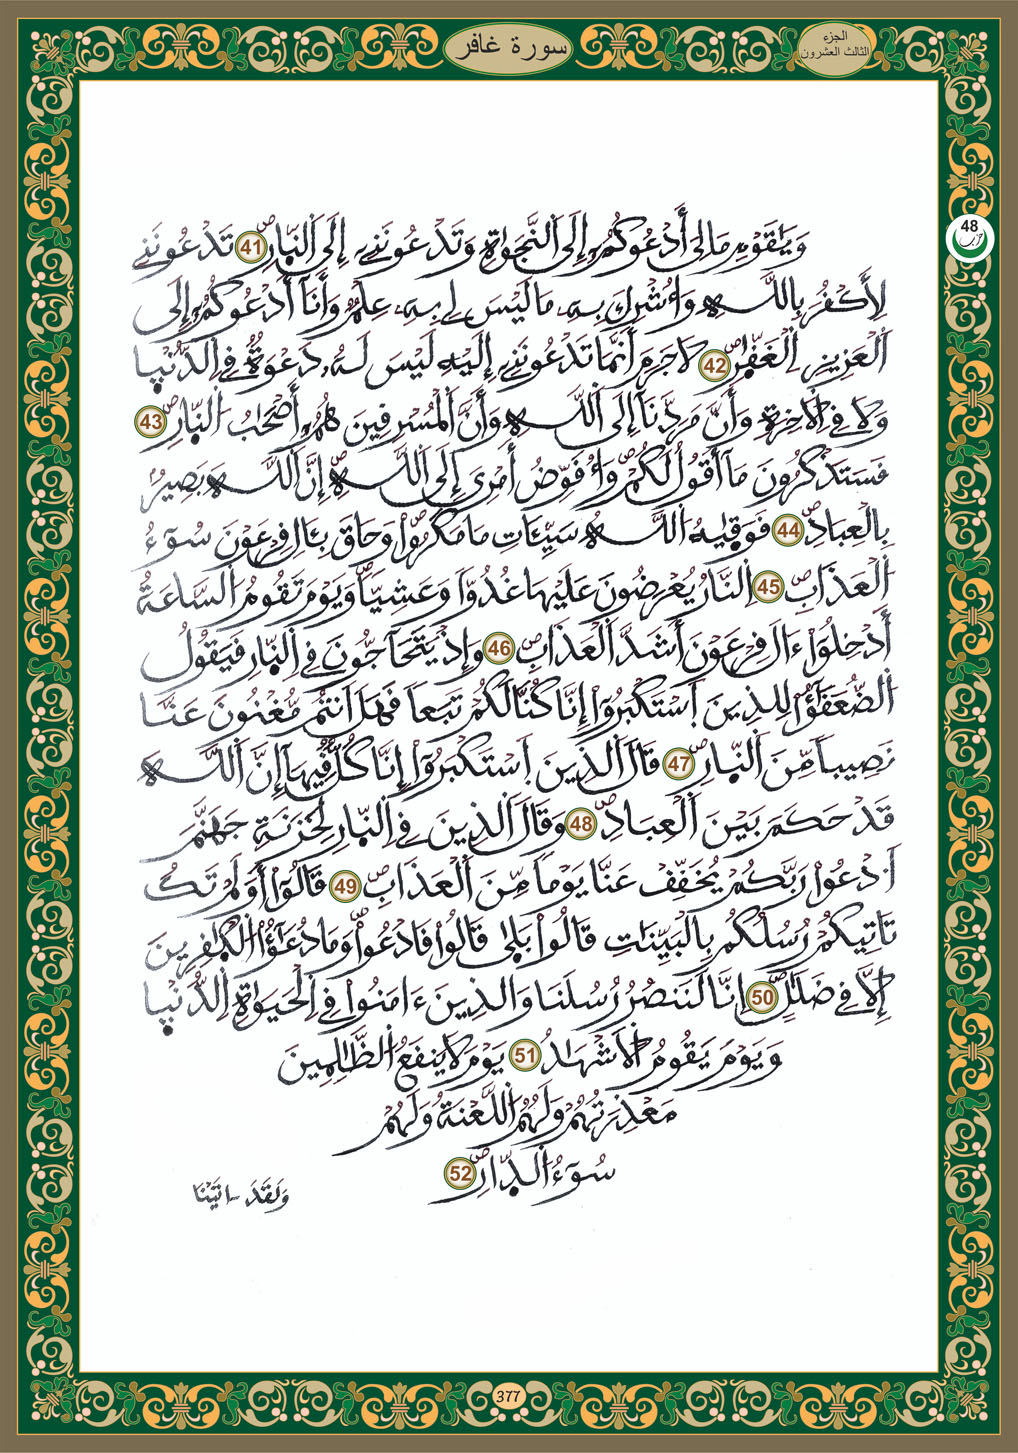 سورة غافر
الجزء
الثالث العشرون
48
حزب
وَيَٰقَوْمِ مَا لِيَ أَدْعُوكُمُۥ إِلَى اَلنَّجَوٰةِ وَتَدْعُونَنِے إِلَى اَلنّ۪ارِ 41 تَدْعُونَنِے
لِأَكْفُرَ بِاللَّهِ وَأُشْرِكَ بِهِۦ مَا لَيْسَ لِے بِهِۦ عِلْمٞ وَأَنَآ أَدْعُوكُمُۥ إِلَى
اَلْعَزِيزِ اِلْغَفّٰ۪رِ 42 لَا جَرَمَ أَنَّمَا تَدْعُونَنِے إِلَيْهِ لَيْسَ لَهُۥ دَعْوَةٞ فِے اِلدُّنْي۪ا
وَلَا فِے اِلَاخِرَةِ وَأَنَّ مَرَدَّنَآ إِلَى اَللَّهِ وَأَنَّ اَلْمُسْرِفِينَ هُمُۥ أَصْحَٰبُ اُلنّ۪ارِ 43
فَسَتَذْكُرُونَ مَآ أَقُولُ لَكُمْ وَأُفَوِّضُ أَمْرِيَ إِلَى اَللَّهِ إِنَّ اَللَّهَ بَصِيرُۢ
بِالْعِبَادِ 44 فَوَقٰ۪يهُ اُللَّهُ سَيِّـَٔاتِ مَا مَكَرُواْ وَحَاقَ بِـَٔالِ فِرْعَوْنَ سُوٓءُ
اُلْعَذَابِ 45 اِلنَّارُ يُعْرَضُونَ عَلَيْهَا غُدُوّاٗ وَعَشِيّاٗ وَيَوْمَ تَقُومُ اُلسَّاعَةُ
أَدْخِلُوٓاْ ءَالَ فِرْعَوْنَ أَشَدَّ اَلْعَذَابِ 46 وَإِذْ يَتَحَآجُّونَ فِے اِلنّ۪ارِ فَيَقُولُ
اُلضُّعَفَٰٓؤُاْ لِلذِينَ اَسْتَكْبَرُوٓاْ إِنَّا كُنَّا لَكُمْ تَبَعاٗ فَهَلَ اَنتُم مُّغْنُونَ عَنَّا
نَصِيباٗ مِّنَ اَلنّ۪ارِ 47 قَالَ اَلذِينَ اَسْتَكْبَرُوٓاْ إِنَّا كُلّٞ فِيهَآ إِنَّ اَللَّهَ
قَدْ حَكَمَ بَيْنَ اَلْعِبَادِ 48 وَقَالَ اَلذِينَ فِے اِلنّ۪ارِ لِخَزَنَةِ جَهَنَّمَ
اَدْعُواْ رَبَّكُمْ يُخَفِّفْ عَنَّا يَوْماٗ مِّنَ اَلْعَذَابِ 49 قَالُوٓاْ أَوَلَمْ تَكُ
تَاتِيكُمْ رُسُلُكُم بِالْبَيِّنَٰتِ قَالُواْ بَل۪يٰ قَالُواْ فَادْعُواْ وَمَا دُعَٰٓؤُاْ اُلْكٰ۪فِرِينَ
إِلَّا فِے ضَلَٰلٍ 50 اِنَّا لَنَنصُرُ رُسُلَنَا وَالذِينَ ءَامَنُواْ فِے اِلْحَيَوٰةِ اِلدُّنْي۪ا
وَيَوْمَ يَقُومُ اُلَاشْهَٰدُ 51 يَوْمَ لَا يَنفَعُ اُلظَّٰلِمِينَ
مَعْذِرَتُهُمْ وَلَهُمُ اُللَّعْنَةُ وَلَهُمْ
سُوٓءُ اُلدّ۪ارِ 52
وَلَقَدَ ـاتَيْنَا
377